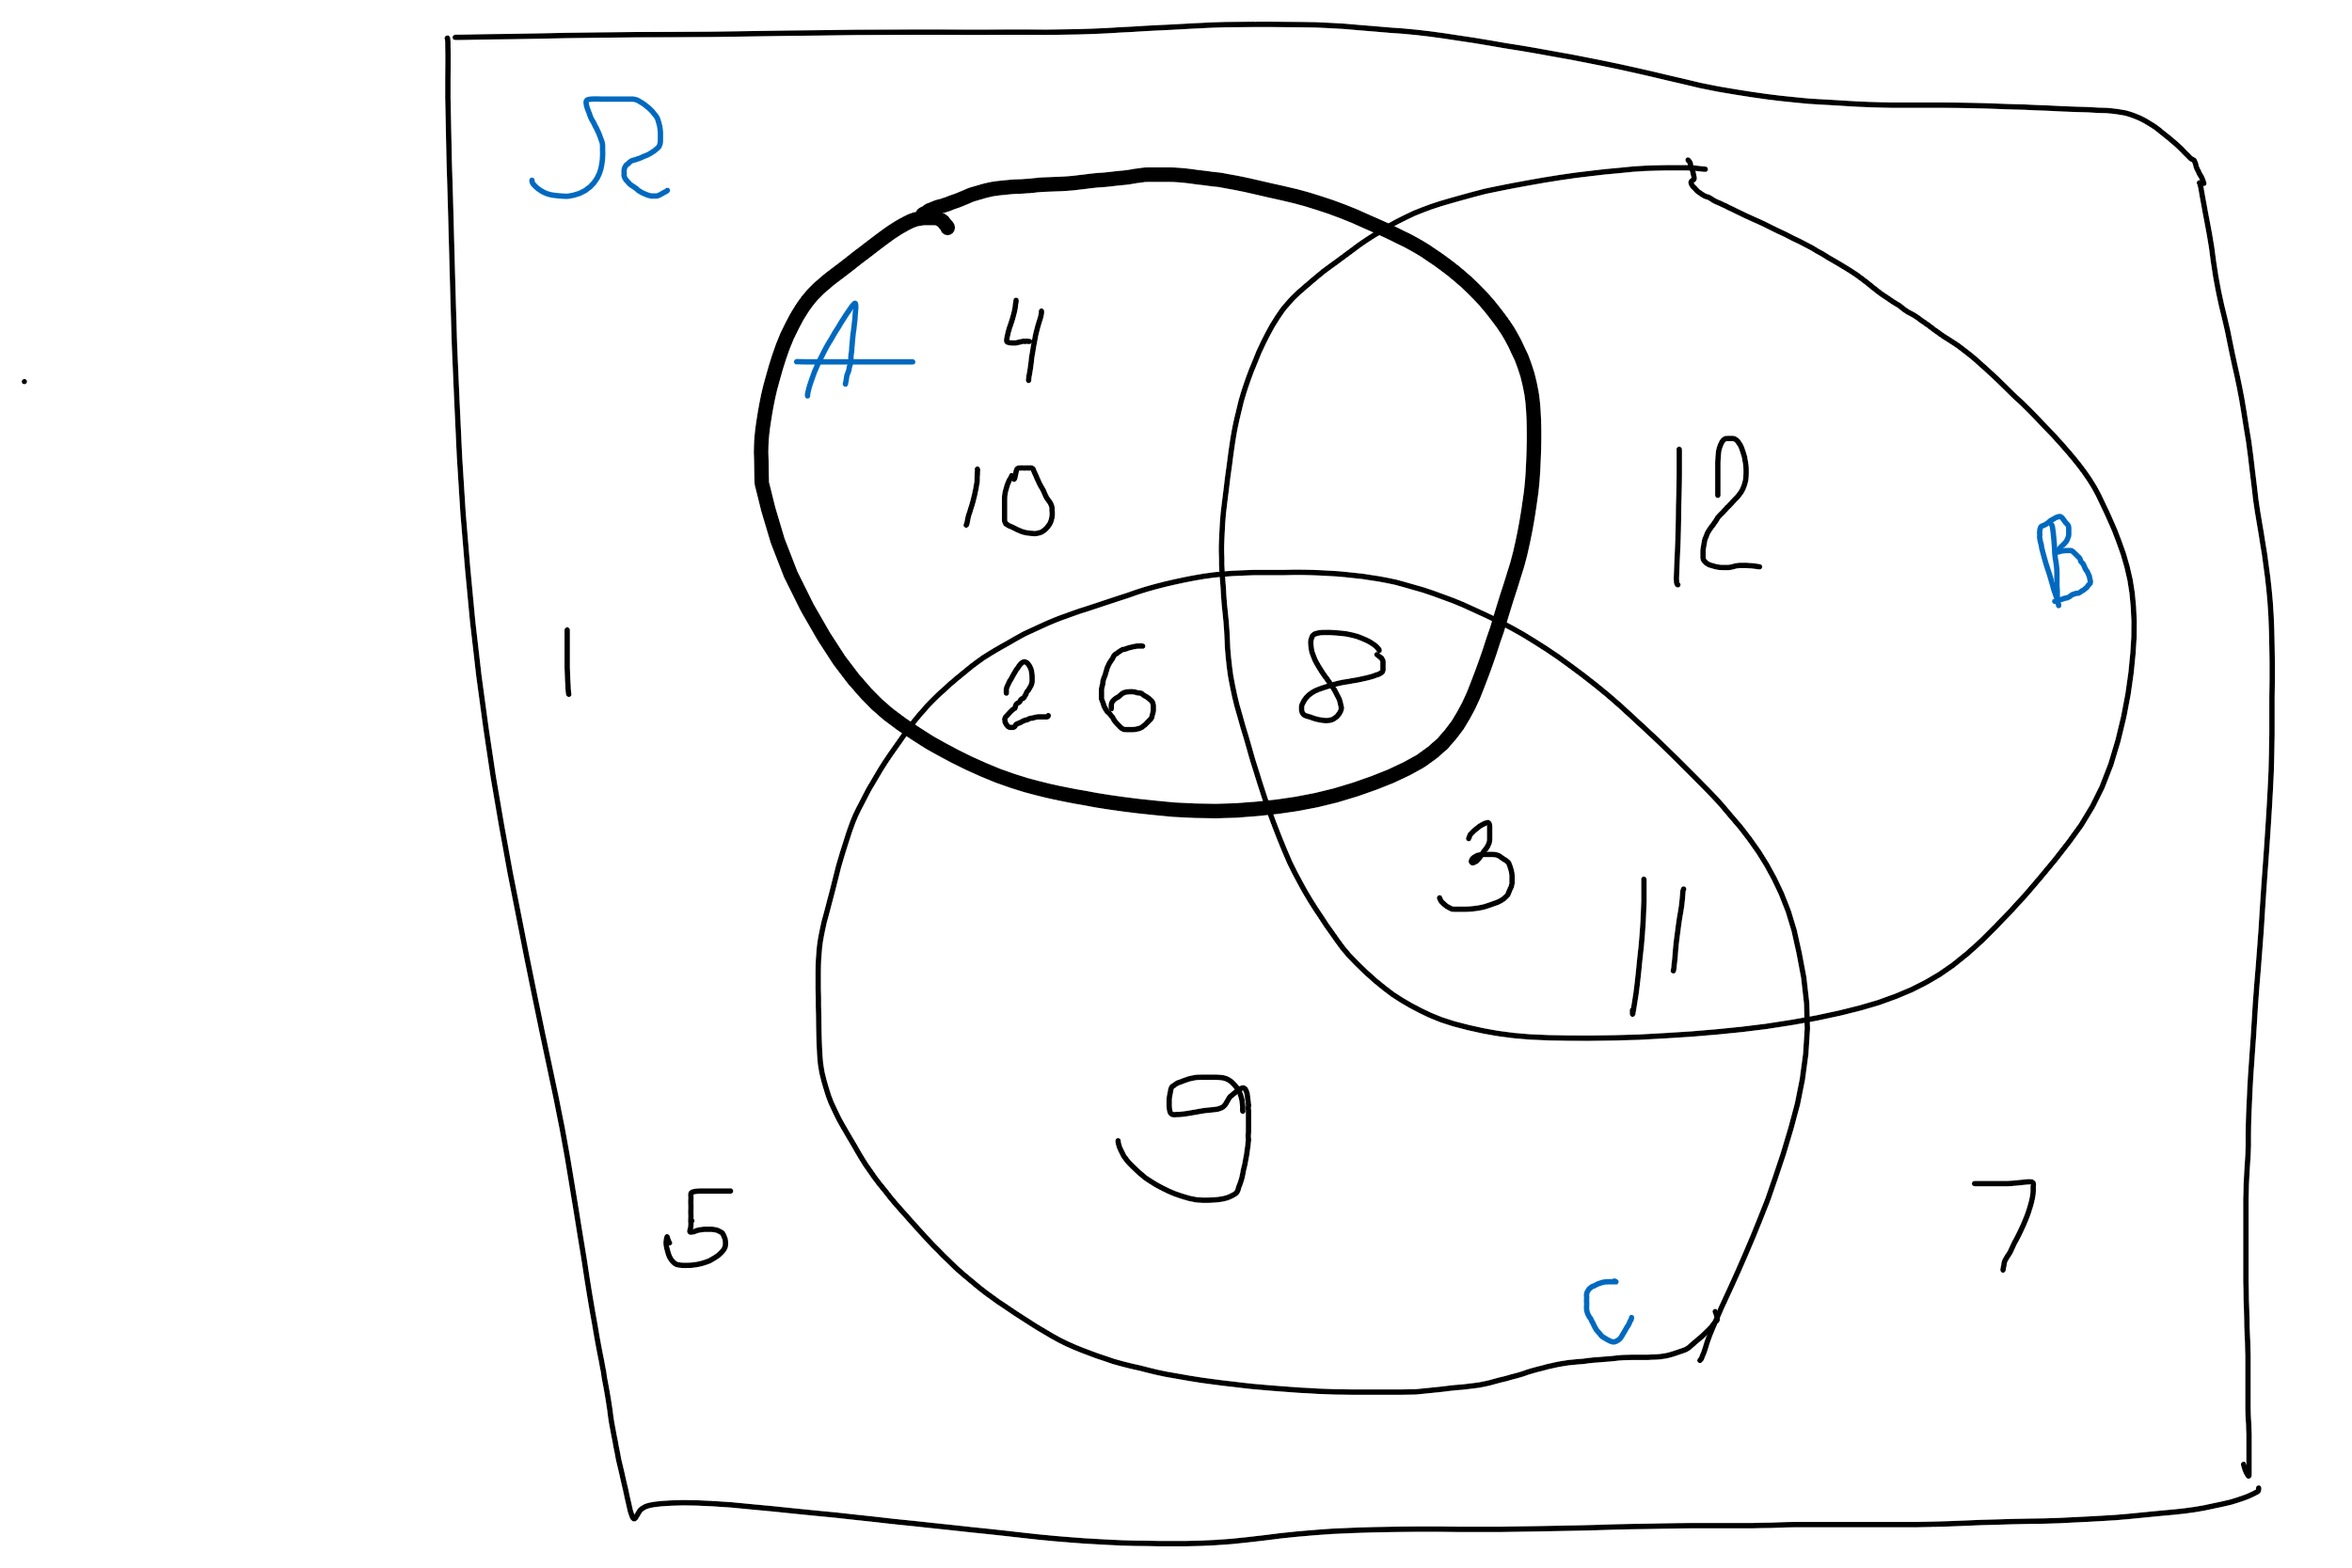 Ω
A 4
10 12
B
1
2 6 8
3
11
9
5 7
C